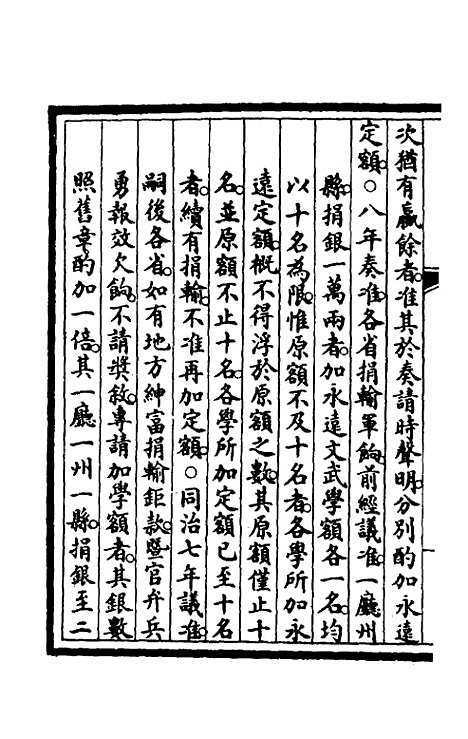 次猶有贏餘者。准其於奏請時聲明。分別酌加永遠
定額。○八年奏准。各省捐輸軍餉。前經議准。一廳州
縣。捐銀一萬兩者。加永遠文武學額各一名。均
以十名為限。惟原額不及十名者。各學所加永
遠定額。概不得浮於原額之數。其原額僅止十
名。並原額不止十名。各學所加定額已至十名
者。續有捐輸。不准再加定額。○同治七年議准。
嗣後各省。如有地方紳富捐輸鉅款。暨官弁兵
勇報效欠餉。不請獎敘。專請加學額者。其銀數
照舊章酌加一倍。其一廳一州一縣。捐銀至二